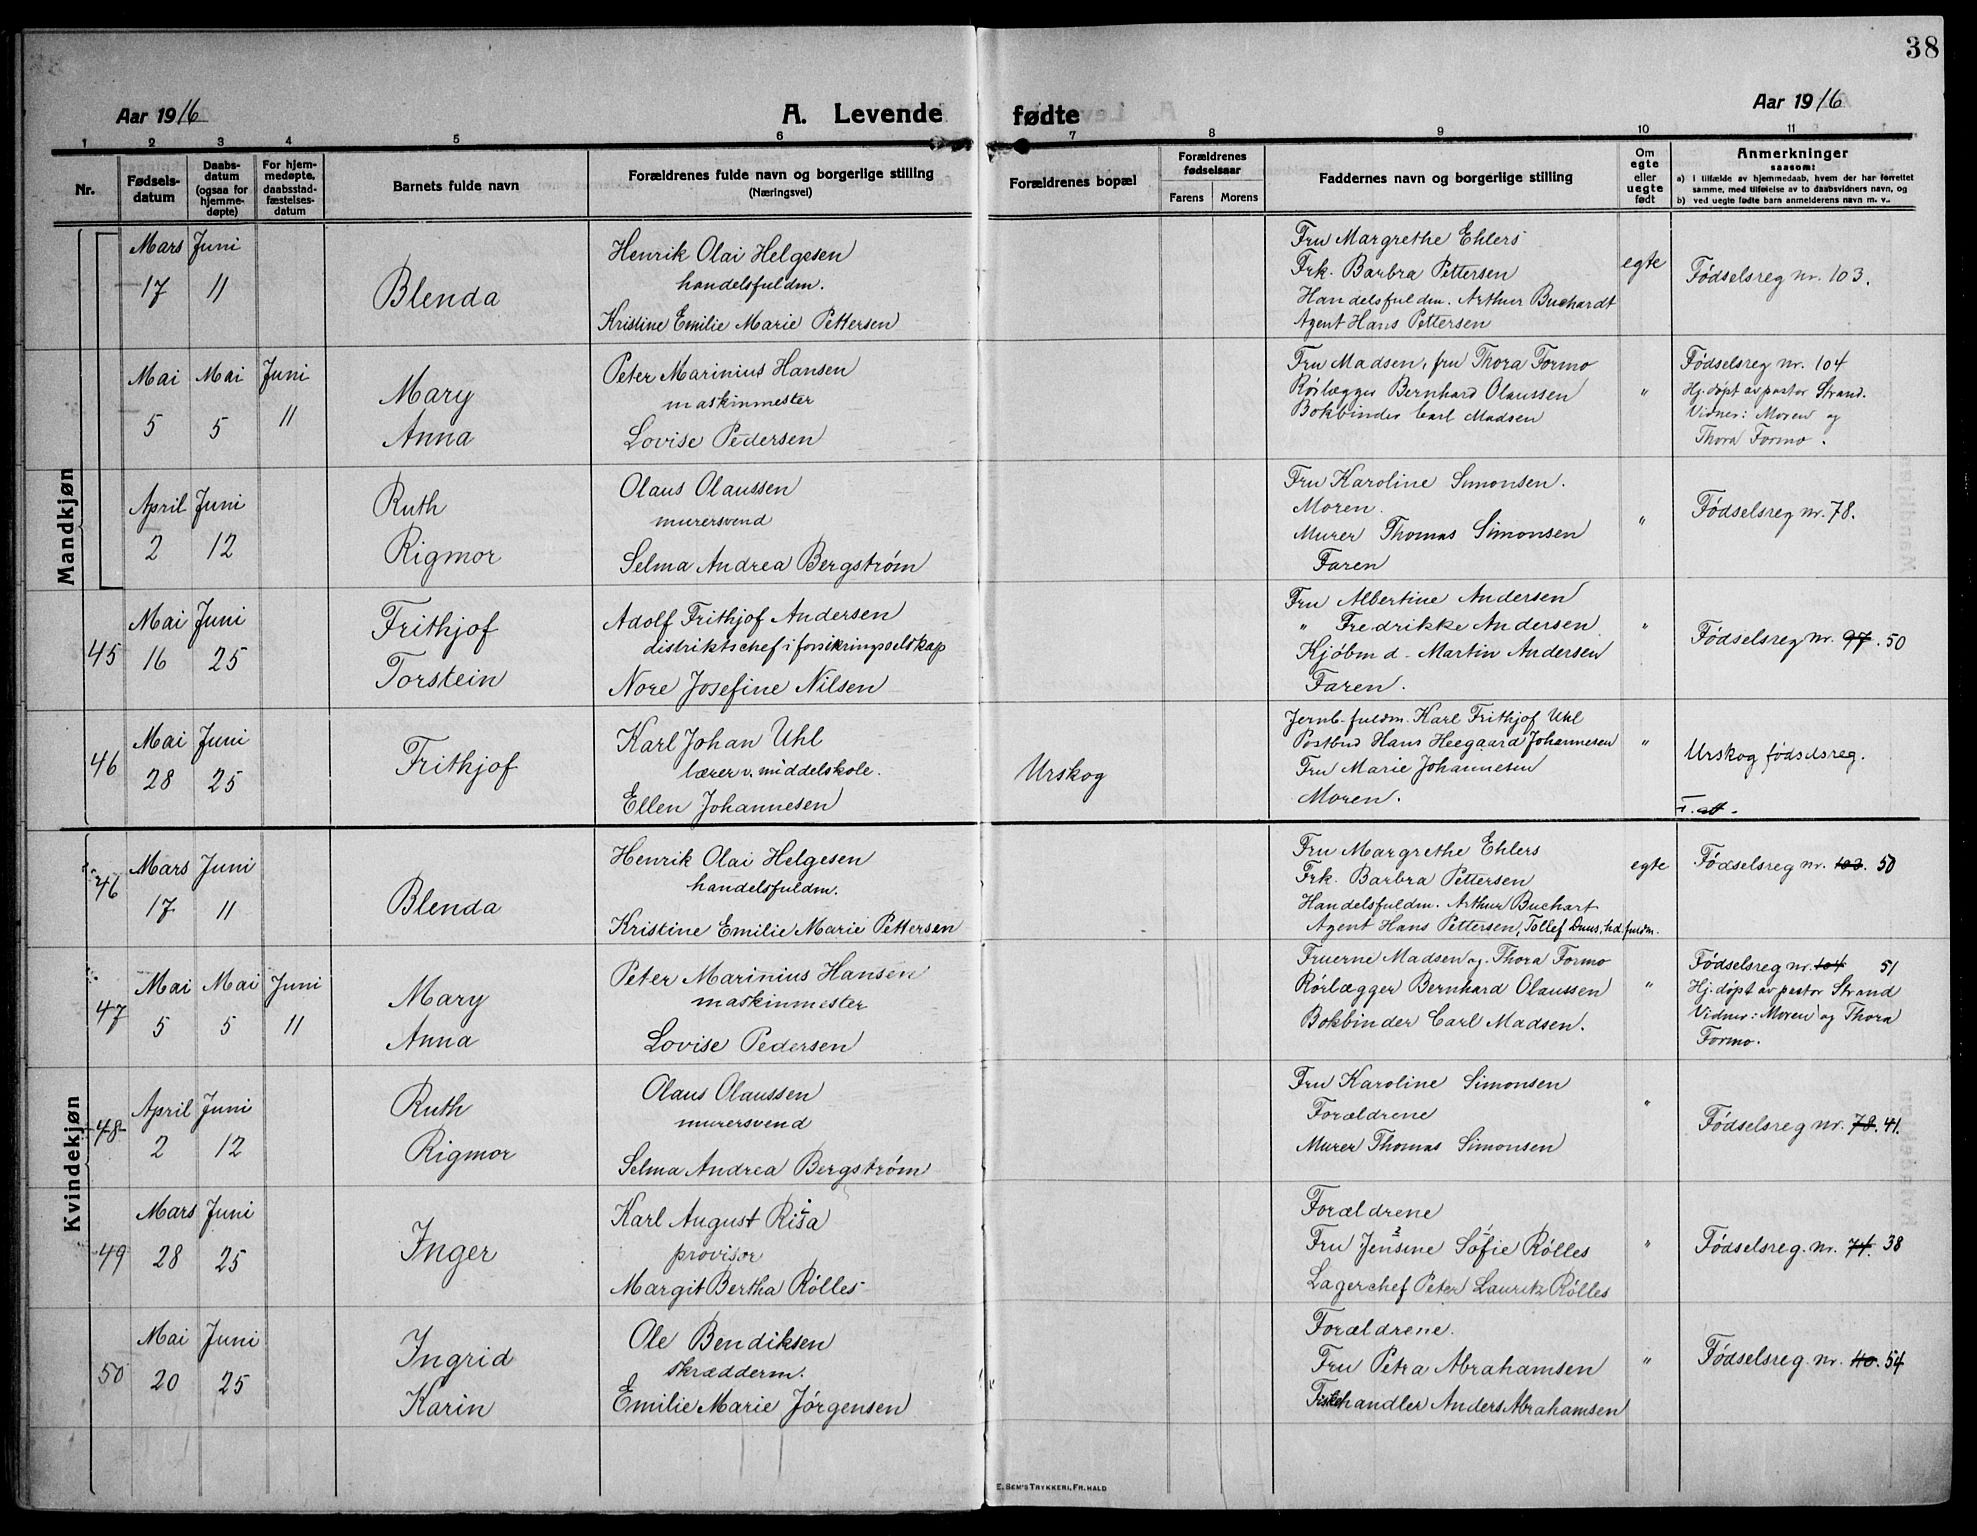 38
Aar 1916
A. Levende fødte
Aar 1916
1 2 3 4 5 6 7 8 9 10 11
Nr.
Fødsels-
datum
Daabs-
datum
(ogsaa for
hjemme-
døpte)
For hjem-
medøpte,
daabsstad-
fæstelses-
datum
Barnets fulde navn
Forældrenes fulde navn og borgerlige stilling
(Næringsvei)
Forældrenes bopæl
Forældrenes
fødselsaar
Farens Morens
Faddernes navn og borgerlige stilling
Om
egte
eller
uegte
født
Anmerkninger
saasom:
a) i tilfælde av hjemmedaab, hvem der har forrettet
samme, med tilføielse av to daabsvidners navn, og
b) ved uegte fødte barn anmelderens navn m. v..
Mandkjøn
Mars Juni
17 11
Blenda
Henrik Olai Helgesen
handelsfuldm.
Kristine Emilie Marie Pettersen
Fru Margrethe Ehlers
Frk. Barbra Pettersen
Handelsfuldm. Arthur Buchardt
Agent Hans Pettersen
egte
Fødselsreg nr. 103.
Mai Mai Juni
5 5 11
Mary
Anna
Peter Marinius Hansen
maskinmester
Lovise Pedersen
Fru Madsen, fru Thora Formo
Rørlægger Bernhard Olaussen
Bokbinder Carl Madsen
"
Fødselsreg nr. 104
Hj. døpt av pastor Strand.
Vidner: Moren og
Thora Formo.
April Juni
2 12
Ruth
Rigmor
Olaus Olaussen
murersvend
Selma Andrea Bergstrøm
Fru Karoline Simonsen.
Moren.
Murer Thomas Simonsen
Faren
"
Fødselsreg nr. 78.
45
Mai Juni
16 25
Frithjof
Torstein
Adolf Frithjof Andersen
distriktschef i forsikringsselskap
Nore Josefine Nilsen
Fru Albertine Andersen
" Fredrikke Andersen
Kjøbmd. Martin Andersen
Faren.
"
Fødselsreg nr. 97. 50
46
Mai Juni
28 25
Frithjof
Karl Johan Uhl
lærer v. middelskole.
Ellen Johannesen
Urskog
Jernb. fuldm. Karl Frithjof Uhl
Postbud Hans Heegaard Johannesen
Fru Marie Johannesen
Moren.
"
Urskog fødselsreg.
F. att.
Kvindekjøn
46
Mars Juni
17 11
Blenda
Henrik Olai Helgesen
handelsfuldm.
Kristine Emilie Marie Pettersen
Fru Margrethe Ehlers
Frk. Barbra Pettersen
Handelsfuldm. Arthur Buchart
Agent Hans Pettersen, Tollef Duus, hd. fuldm.
egte
Fødselsreg nr. 103. 50
47
Mai Mai Juni
5 5 11
Mary
Anna
Peter Marinius Hansen
maskinmester
Lovise Pedersen
Fruerne Madsen og Thora Formo
Rørlægger Bernhard Olaussen
Bokbinder Carl Madsen.
"
Fødselsreg nr. 104 51
Hj. døpt av pastor Strand
Vidner: Moren og Thora
Formo.
48
April Juni
2 12
Ruth
Rigmor
Olaus Olaussen
murersvend
Selma Andrea Bergstrøm
Fru Karoline Simonsen
Forældrene
Murer Thomas Simonsen
"
Fødselsreg nr. 78. 41.
49
Mars Juni
28 25
Inger
Karl August Risa
provisor
Margit Bertha Rølles
Forældrene
Fru Jensine Sofie Rølles
Lagerchef Peter Lauritz Rølles
"
Fødselsreg. nr. 74. 38
50
Mai Juni
20 25
Ingrid
Karin
Ole Bendiksen
skrædderm.
Emilie Marie Jørgensen
Forældrene.
Fru Petra Abrahamsen
Fiskehandler Anders Abrahamsen
"
Fødselsreg. nr. 110. 54
E. SEM'S TRYKKERI, FR. HALD